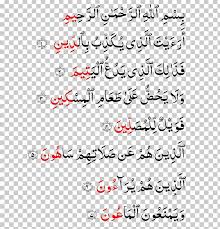 بِسْمِ ٱللَّهِ ٱلرَّحْمَٰنِ ٱلرَّحِيمِ
أَرَءَيْتَ ٱلَّذِى يُكَذِّبُ بِٱلدِّينِ ١
فَذَٰلِكَ ٱلَّذِى يَدُعُّ ٱلْيَتِيمَ ٢
وَلَا يَحُضُّ عَلَىٰ طَعَامِ ٱلْمِسْكِينِ ٣
فَوَيْلٌ لِّلْمُصَلِّينَ ٤
ٱلَّذِينَ هُمْ عَن صَلَاتِهِمْ سَاهُونَ ٥
ٱلَّذِينَ هُمْ يُرَآءُونَ ٦
وَيَمْنَعُونَ ٱلْمَاعُونَ ٧